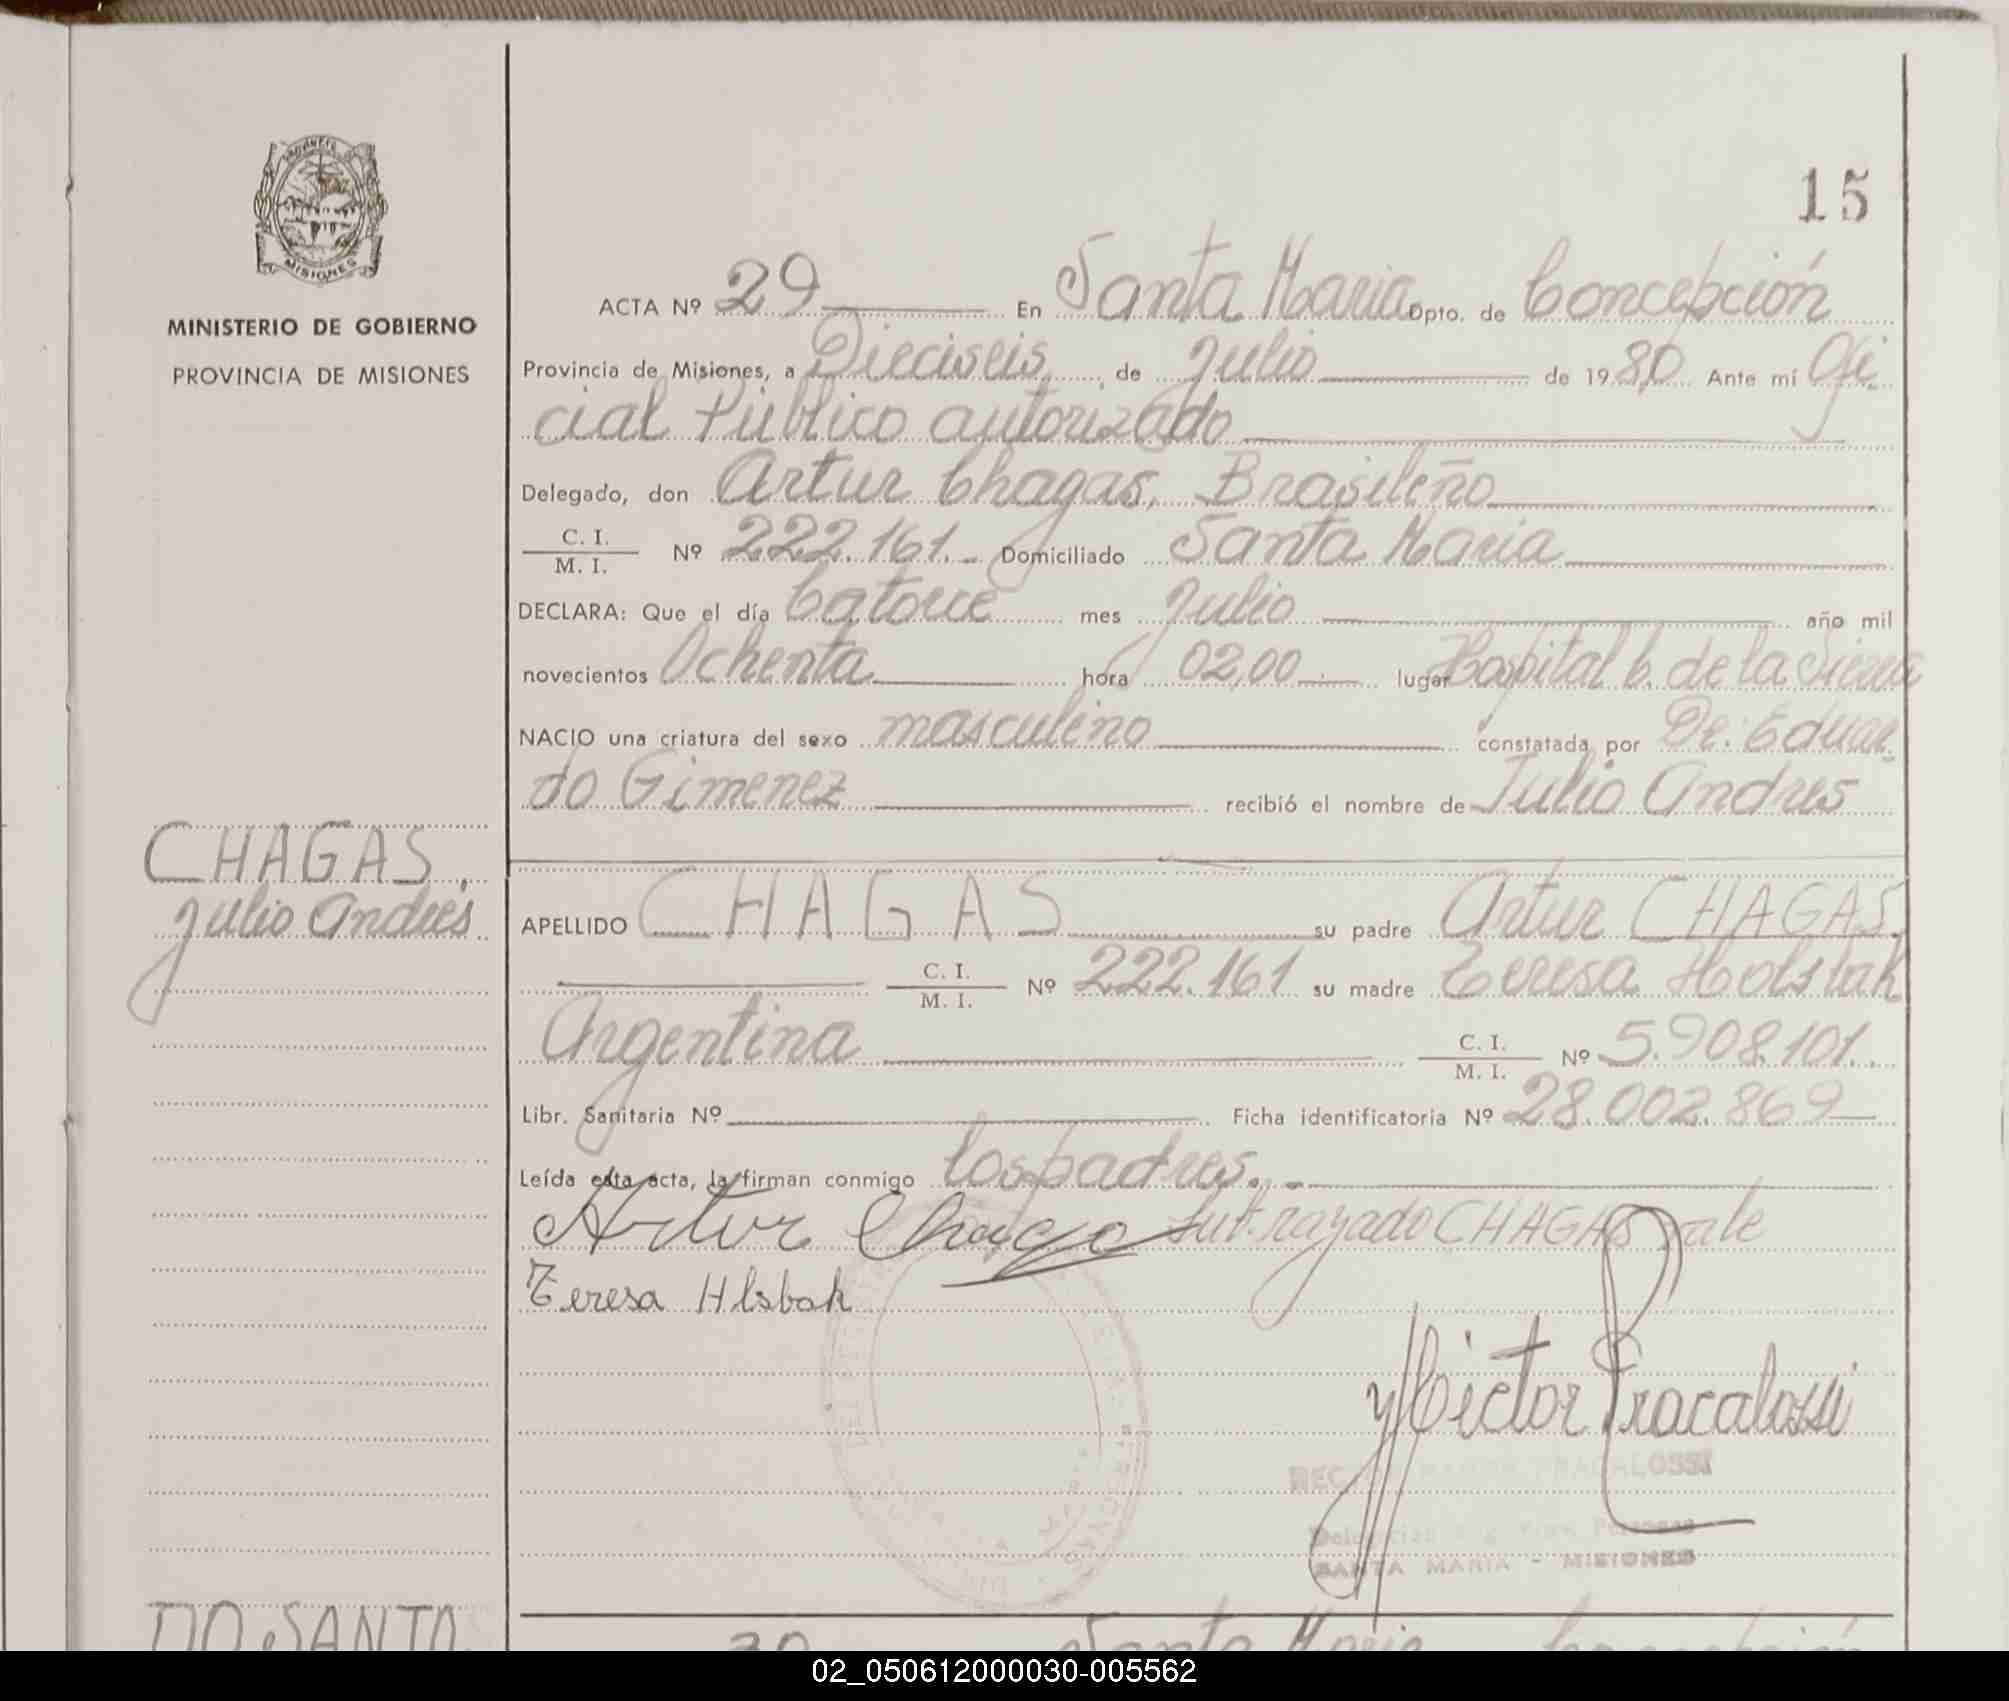 15
PROVINCIA
MISIONES
MINISTERIO DE GOBIERNO
PROVINCIA DE MISIONES
CHAGAS,
Julio Andres
DO SANTO
ACTA Nº 29 En Santa Maria Dpto. de Concepción
Provincia de Misiones, a Dieciseis, de Julio de 1980 Ante mí Ofi
cial Público autorizado
Delegado, don Artur Chagas, Brasileño
C. I.
M. I. Nº 222.161.- Domiciliado Santa Maria
DECLARA: Que el día Catorce mes Julio año mil
novecientos Ochenta hora 02,00 lugar Hospital C. de la Sierra
NACIO una criatura del sexo masculino constatada por Dr. Eduar
do Gimenez recibió el nombre de Julio Andres
APELLIDO CHAGAS su padre Artur CHAGAS.
C. I.
M. I. Nº 222.161 su madre Teresa Holsbak
Argentina C. I.
M. I. Nº 5.908.101.
Libr. Sanitaria Nº Ficha identificatoria Nº 28.002.869
Leída esta acta, la firman conmigo los padres.-
Artur Chaga Sub. rayado CHAGAS vale
Teresa Hlsbak
Hector Fracalossi
HECTOR RAMON FRACALOSSI
SANTA MARIA - MISIONES
30 Santa Maria Concepción
02_050612000030-005562